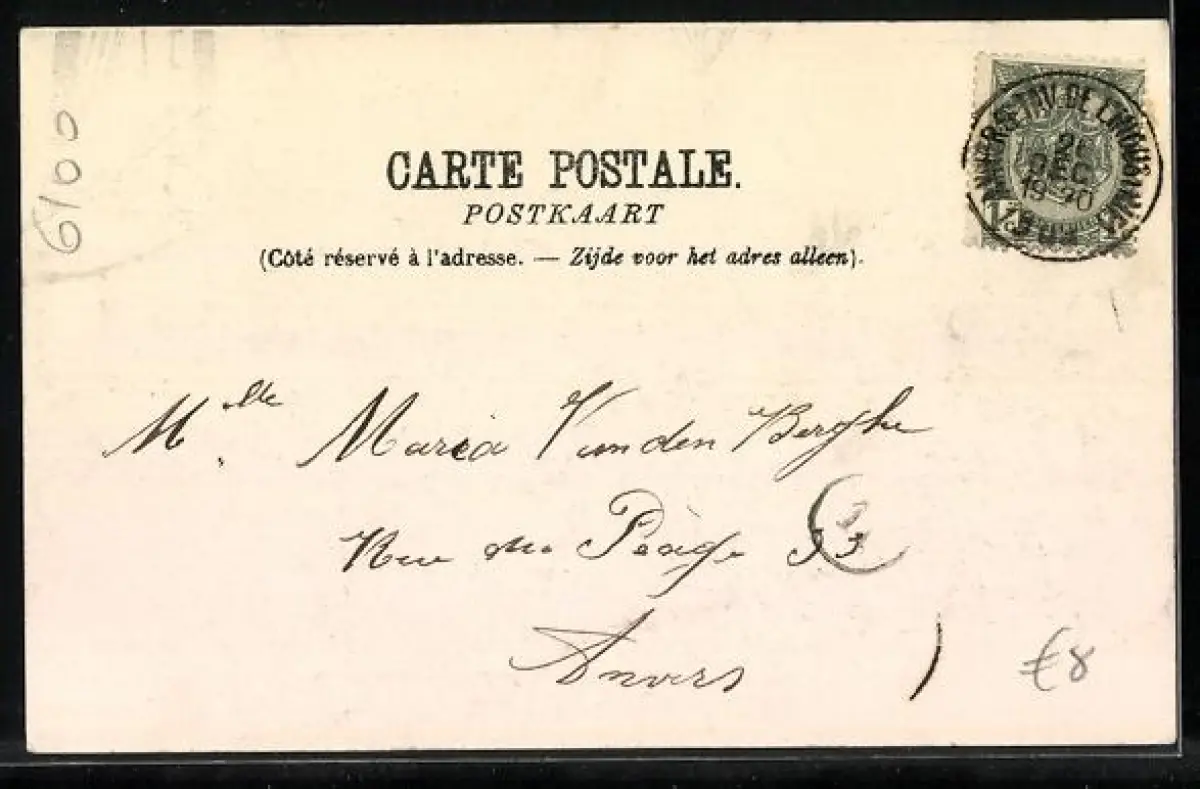 6100
CARTE POSTALE.
POSTKAART
(Côté réservé à l'adresse. — Zijde voor het adres alleen).
DEC
M.lle Maria Vanden Berghe
Rue du Péage 33
Anvers
€8